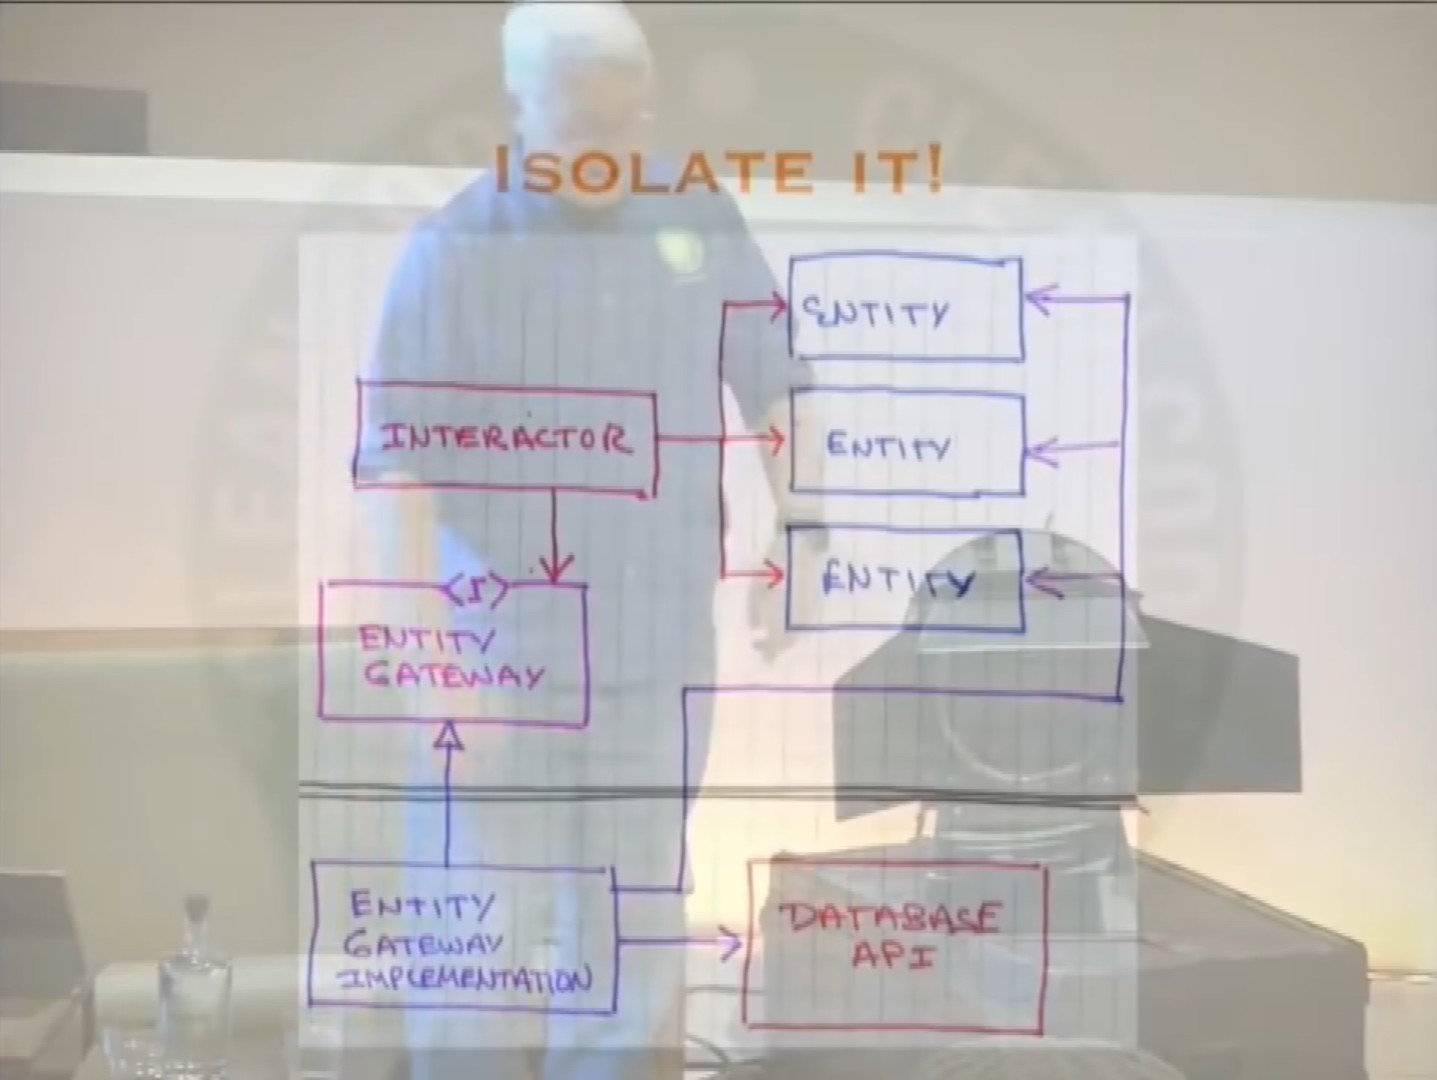 ISOLATE IT!
ENTITY
INTERACTOR
ENTITY
<I>
ENTITY
ENTITY
GATEWAY
ENTITY
GATEWAY
IMPLEMENTATION
DATABASE
API